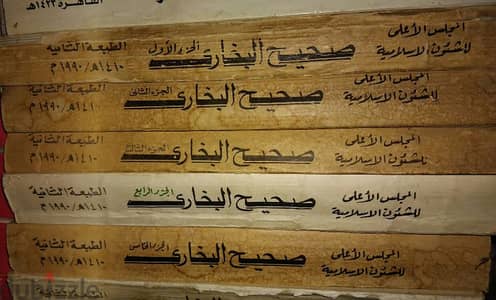 القاهرة ١٤٢٣هـ
المجلس الأعلى للشئون الاسلامية
صحيح البخارى
الجزء الأول
الطبعة الثانية
١٤١٠هـ/١٩٩٠م
المجلس الأعلى للشئون الاسلامية
صحيح البخارى
الجزء الثانى
الطبعة الثانية
١٤١٠هـ/١٩٩٠م
المجلس الأعلى للشئون الاسلامية
صحيح البخارى
الجزء الثالث
الطبعة الثانية
١٤١٠هـ/١٩٩٠م
المجلس الأعلى للشئون الاسلامية
صحيح البخارى
الجزء الرابع
الطبعة الثانية
١٤١٠هـ/١٩٩٠م
المجلس الأعلى للشئون الاسلامية
صحيح البخارى
الجزء الخامس
الطبعة الثانية
١٤١٠هـ/١٩٩٠م
dubizzle